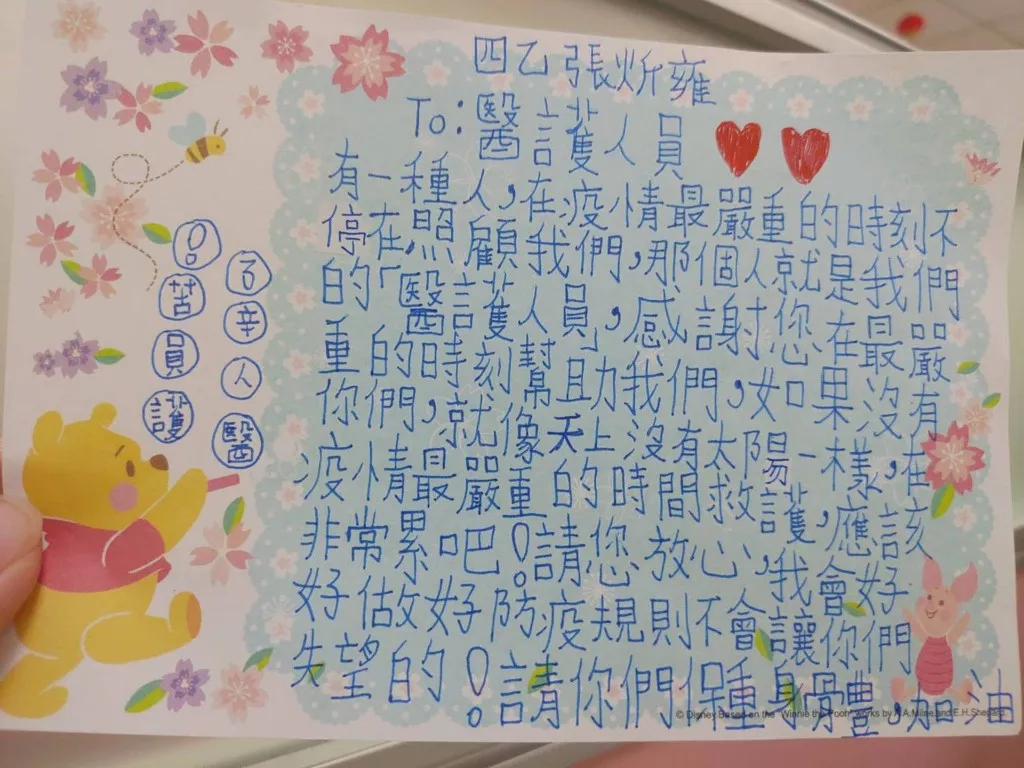 四乙 張炘雍
To:醫護人員
有一種人,在疫情最嚴重的時刻不
停在照顧我們,那個人就是我們
的「醫護人員」,感謝您在最嚴
重的時刻幫助我們,如果沒有
你們,就像天上沒有太陽一樣,在
疫情最嚴重的時間救護,應該
非常累吧!請您放心,我會好
好做好防疫規則不會讓你們
失望的!請你們保重身體,加油
醫護
人員
辛苦
© Disney Based on the "Winnie the Pooh" works by A.A.Milne and E.H.Shepard